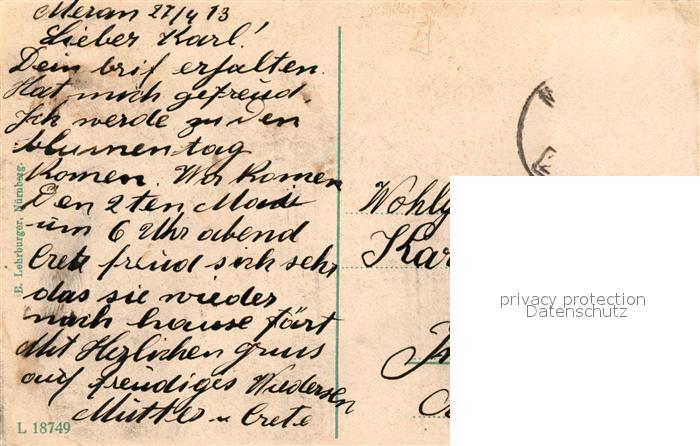 Meran 27/4 13
Lieber Karl!
Dein brif erfalten.
Hat mich gefreud.
Ich werde zu den
blumentag
Komen. Wir Komen
Den 2ten Madi
um 6 Uhr abend
Crete freud sich sehr
das sie wieder
nach hause färt
Mit Herzlichen gruss
auf freudiges Widersen
Mutter u Crete
E. Lehrburger, Nürnberg.
L 18749
Wohlg
Kar
privacy protection
Datenschutz